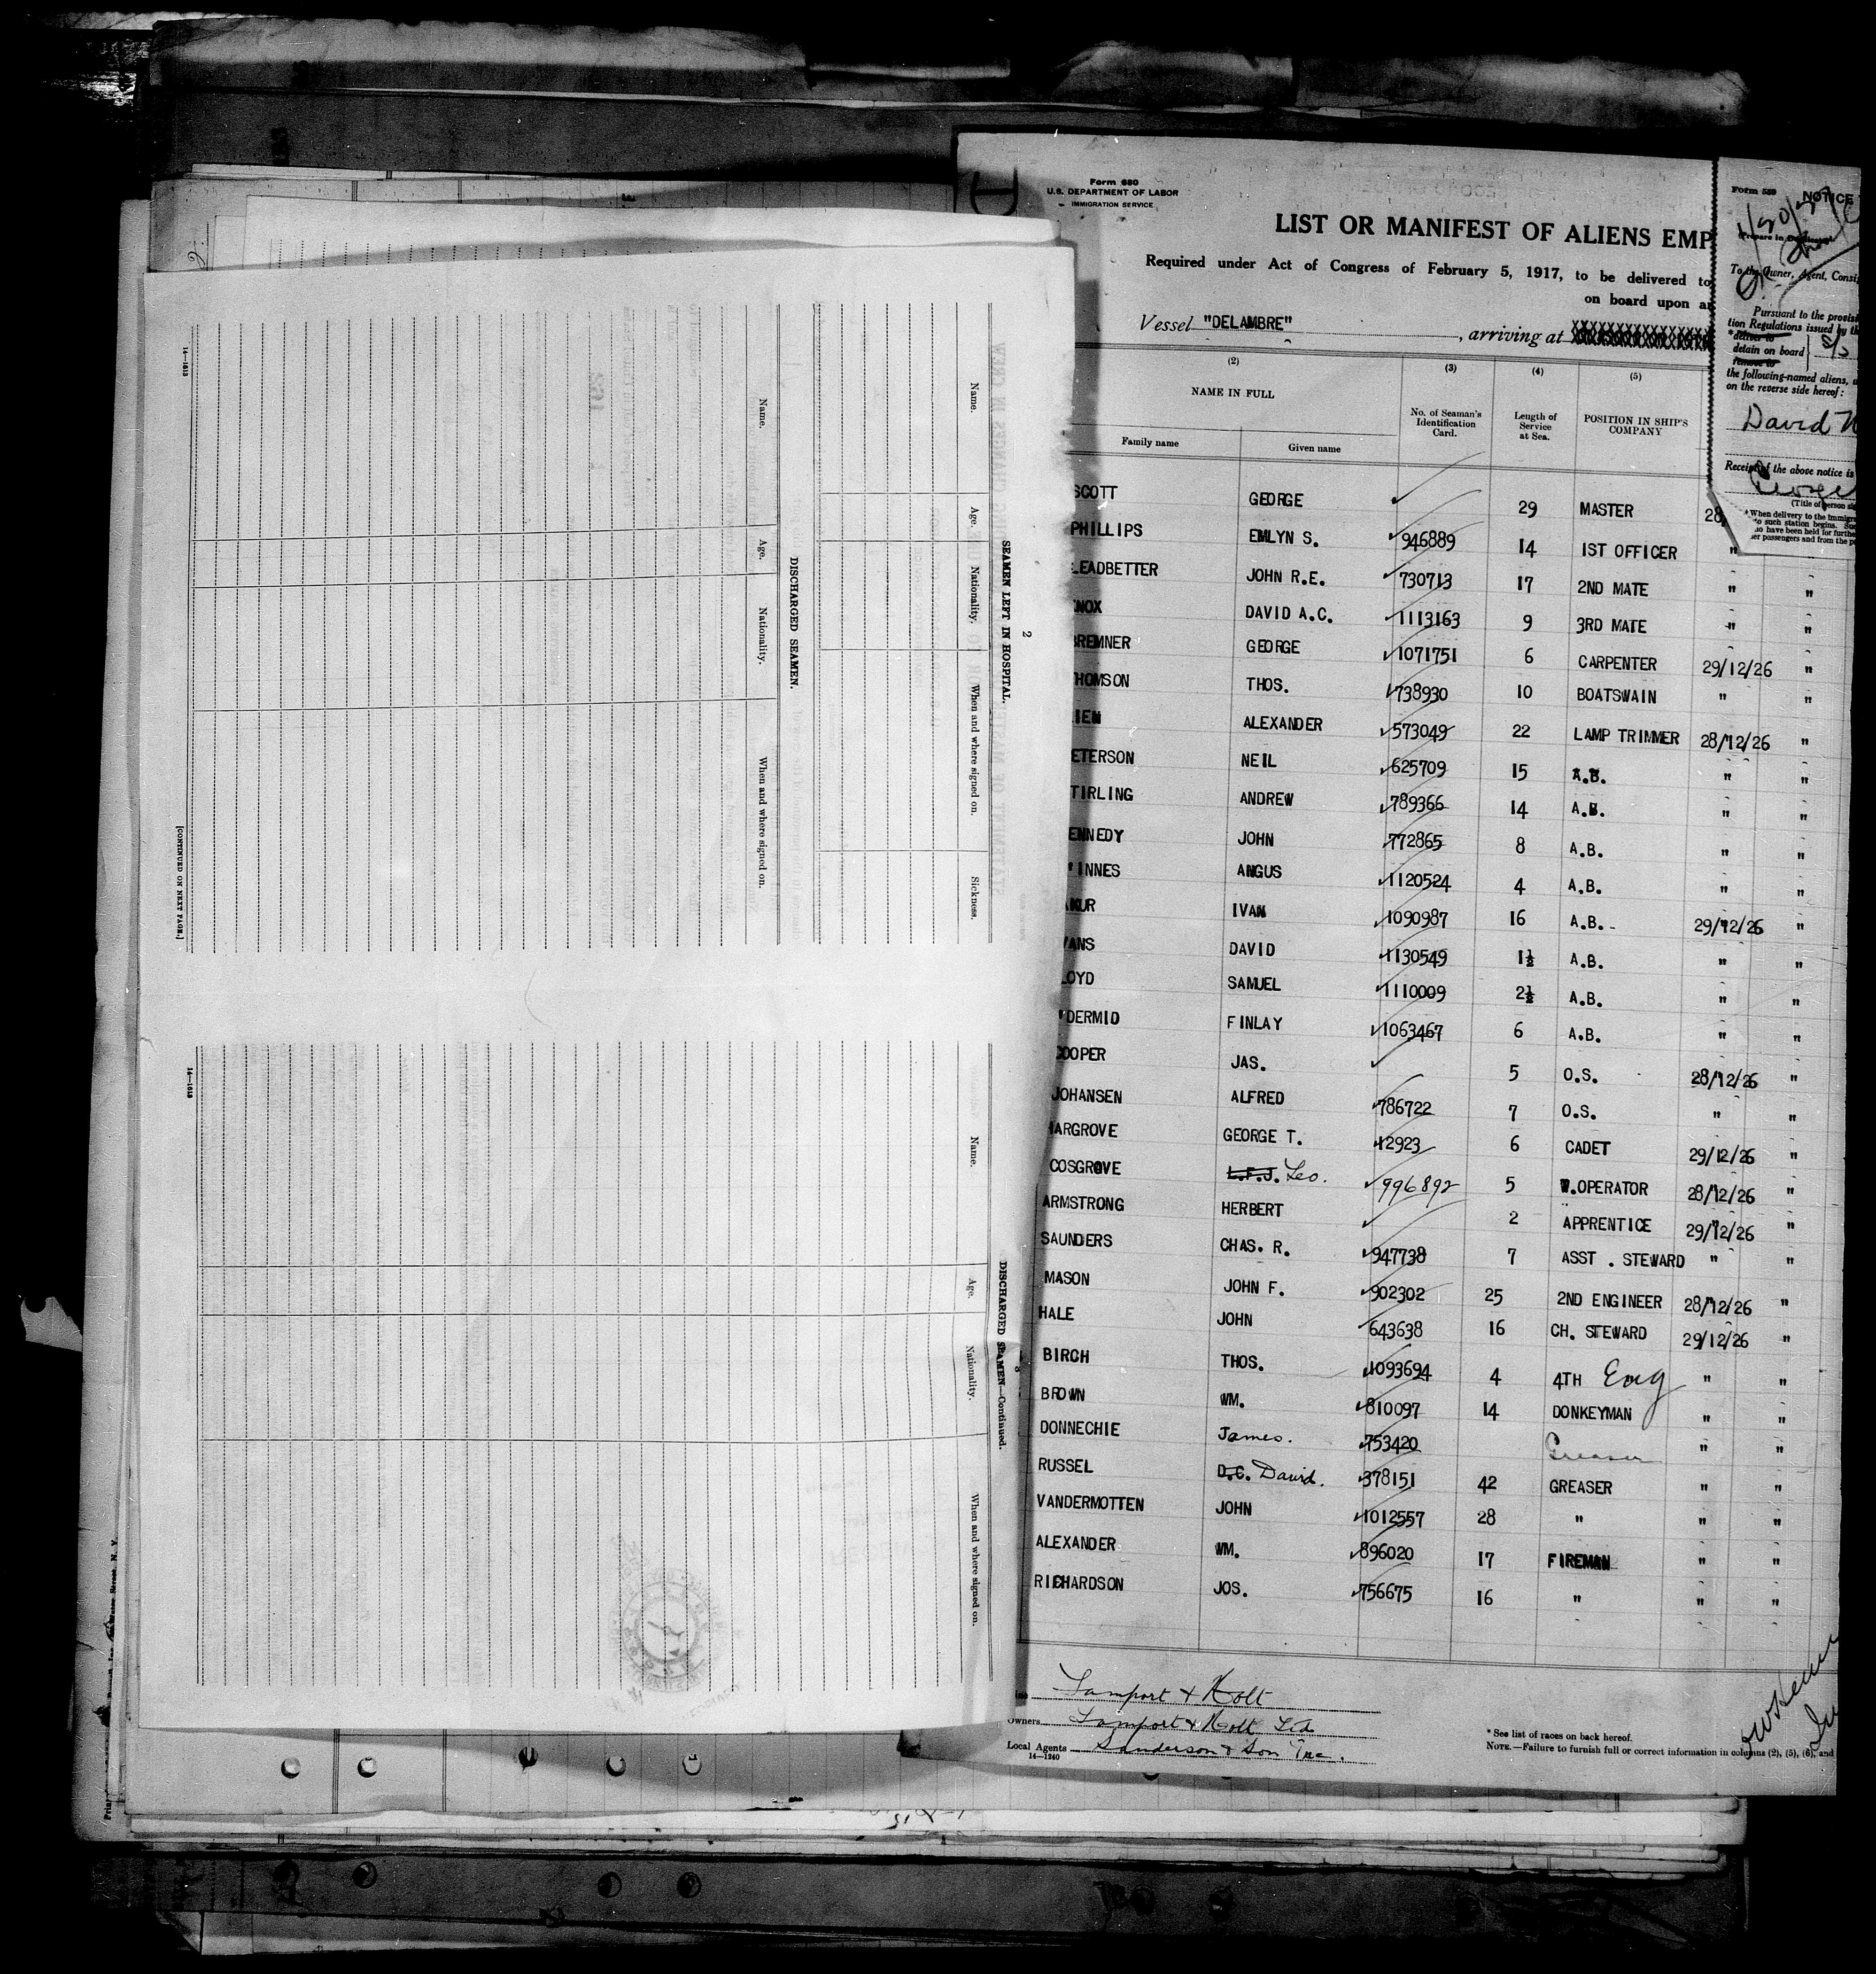 SEAMEN LEFT IN HOSPITAL.
Name.
Age.
Nationality.
When and where signed on.
Sickness.
2
DISCHARGED SEAMEN.
Name.
Age.
Nationality.
When and where signed on.
14—1613
[CONTINUED ON NEXT PAGE.]
DISCHARGED SEAMEN—Continued.
3
Name.
Age.
Nationality.
When and where signed on.
14—1613
Form 680
U.S. DEPARTMENT OF LABOR
IMMIGRATION SERVICE
LIST OR MANIFEST OF ALIENS EMP
Required under Act of Congress of February 5, 1917, to be delivered to
on board upon ar
Vessel "DELAMBRE" , arriving at
(2) (3) (4) (5)
NAME IN FULL No. of Seaman's Identification Card. Length of Service at Sea. POSITION IN SHIP'S COMPANY
Family name Given name
SCOTT GEORGE 29 MASTER 28
PHILLIPS EMLYN S. 946889 14 1ST OFFICER "
LEADBETTER JOHN R.E. 730713 17 2ND MATE " "
NOX DAVID A.C. 1113163 9 3RD MATE " "
BREMNER GEORGE 1071751 6 CARPENTER 29/12/26 "
HOMSON THOS. 738930 10 BOATSWAIN " "
IEN ALEXANDER 573049 22 LAMP TRIMMER 28/12/26 "
ETERSON NEIL 625709 15 A.B. " "
TIRLING ANDREW 789366 14 A.B. " "
ENNEDY JOHN 772865 8 A.B. " "
'INNES ANGUS 1120524 4 A.B. " "
KUR IVAN 1090987 16 A.B. 29/12/26 "
VANS DAVID 1130549 1½ A.B. " "
LOYD SAMUEL 1110009 2½ A.B. " "
'DERMID FINLAY 1063467 6 A.B. " "
COOPER JAS. 5 O.S. 28/12/26 "
JOHANSEN ALFRED 786722 7 O.S. " "
HARGROVE GEORGE T. 12923 6 CADET 29/12/26 "
COSGROVE L.F.J. Leo. 996892 5 W.OPERATOR 28/12/26 "
ARMSTRONG HERBERT 2 APPRENTICE 29/12/26 "
SAUNDERS CHAS. R. 947738 7 ASST . STEWARD " "
MASON JOHN F. 902302 25 2ND ENGINEER 28/12/26 "
HALE JOHN 643638 16 CH. STEWARD 29/12/26 "
BIRCH THOS. 1093694 4 4TH Eng " "
BROWN WM. 810097 14 DONKEYMAN " "
DONNECHIE James. 753420 Greaser " "
RUSSEL D.C. David. 378151 42 GREASER " "
VANDERMOTTEN JOHN 1012557 28 " " "
ALEXANDER WM. 896020 17 FIREMAN " "
RICHARDSON JOS. 756675 16 " " "
Lamport & Holt
Owners Lamport & Holt Ltd
Local Agents Sanderson & Son Inc.
14—1240
* See list of races on back hereof.
NOTE.—Failure to furnish full or correct information in columns (2), (5), (6), and
Form 589
NOTICE
To the Owner, Agent, Consi
Pursuant to the provisi
tion Regulations issued by th
*deliver to
detain on board
remove to
S/S
the following-named aliens,
on the reverse side hereof:
David
Receipt of the above notice is
George
(Title of person si
* When delivery to the immigra
to such station begins.
ho have been held for furthe
er passengers and from the p